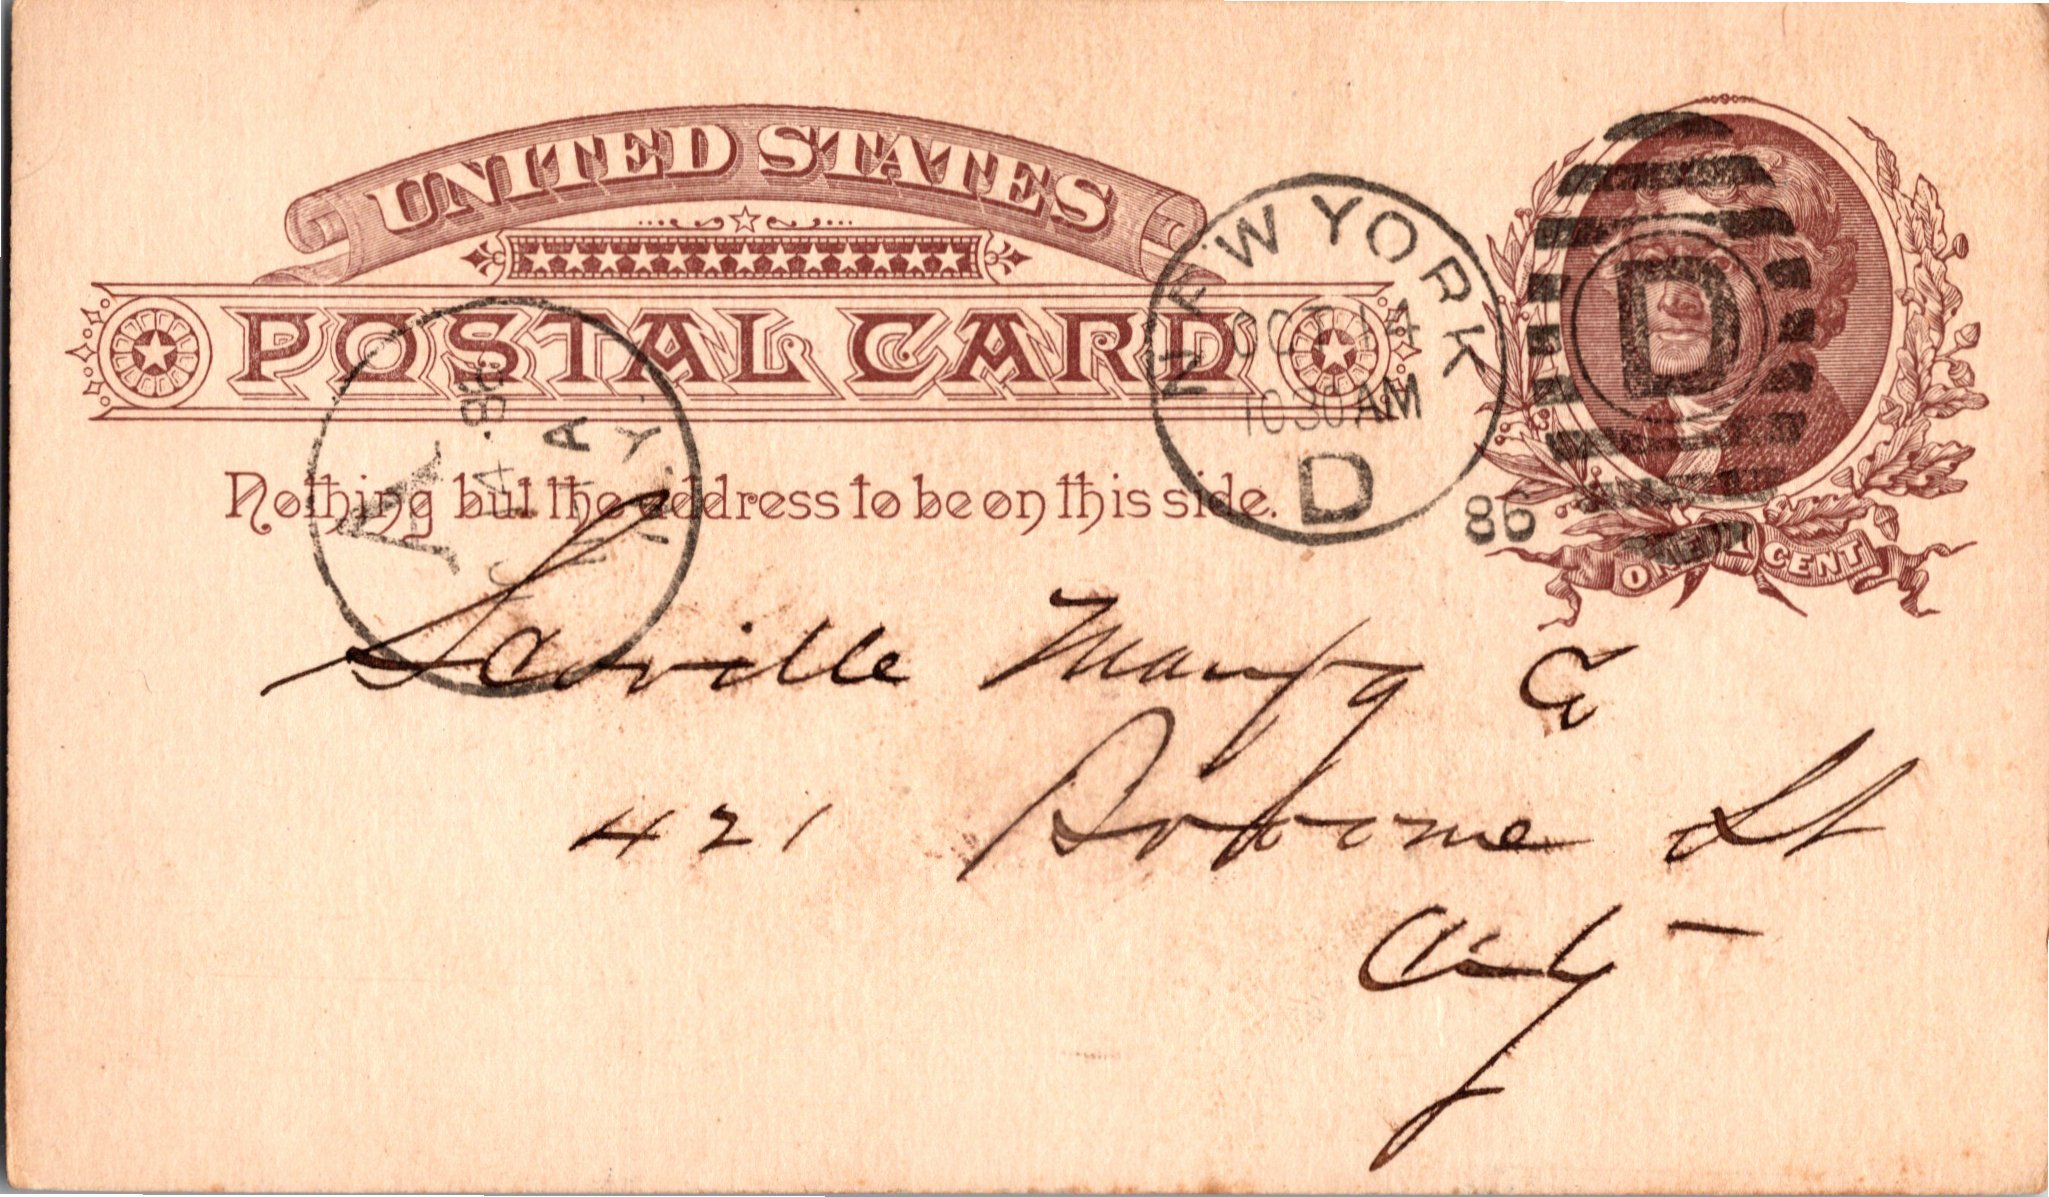 UNITED STATES
POSTAL CARD
Nothing but the address to be on this side.
NEW YORK
OCT 14
1030AM
D
86
D
ONE 1 CENT
Scoville Manfg Co
421 Broome St
City